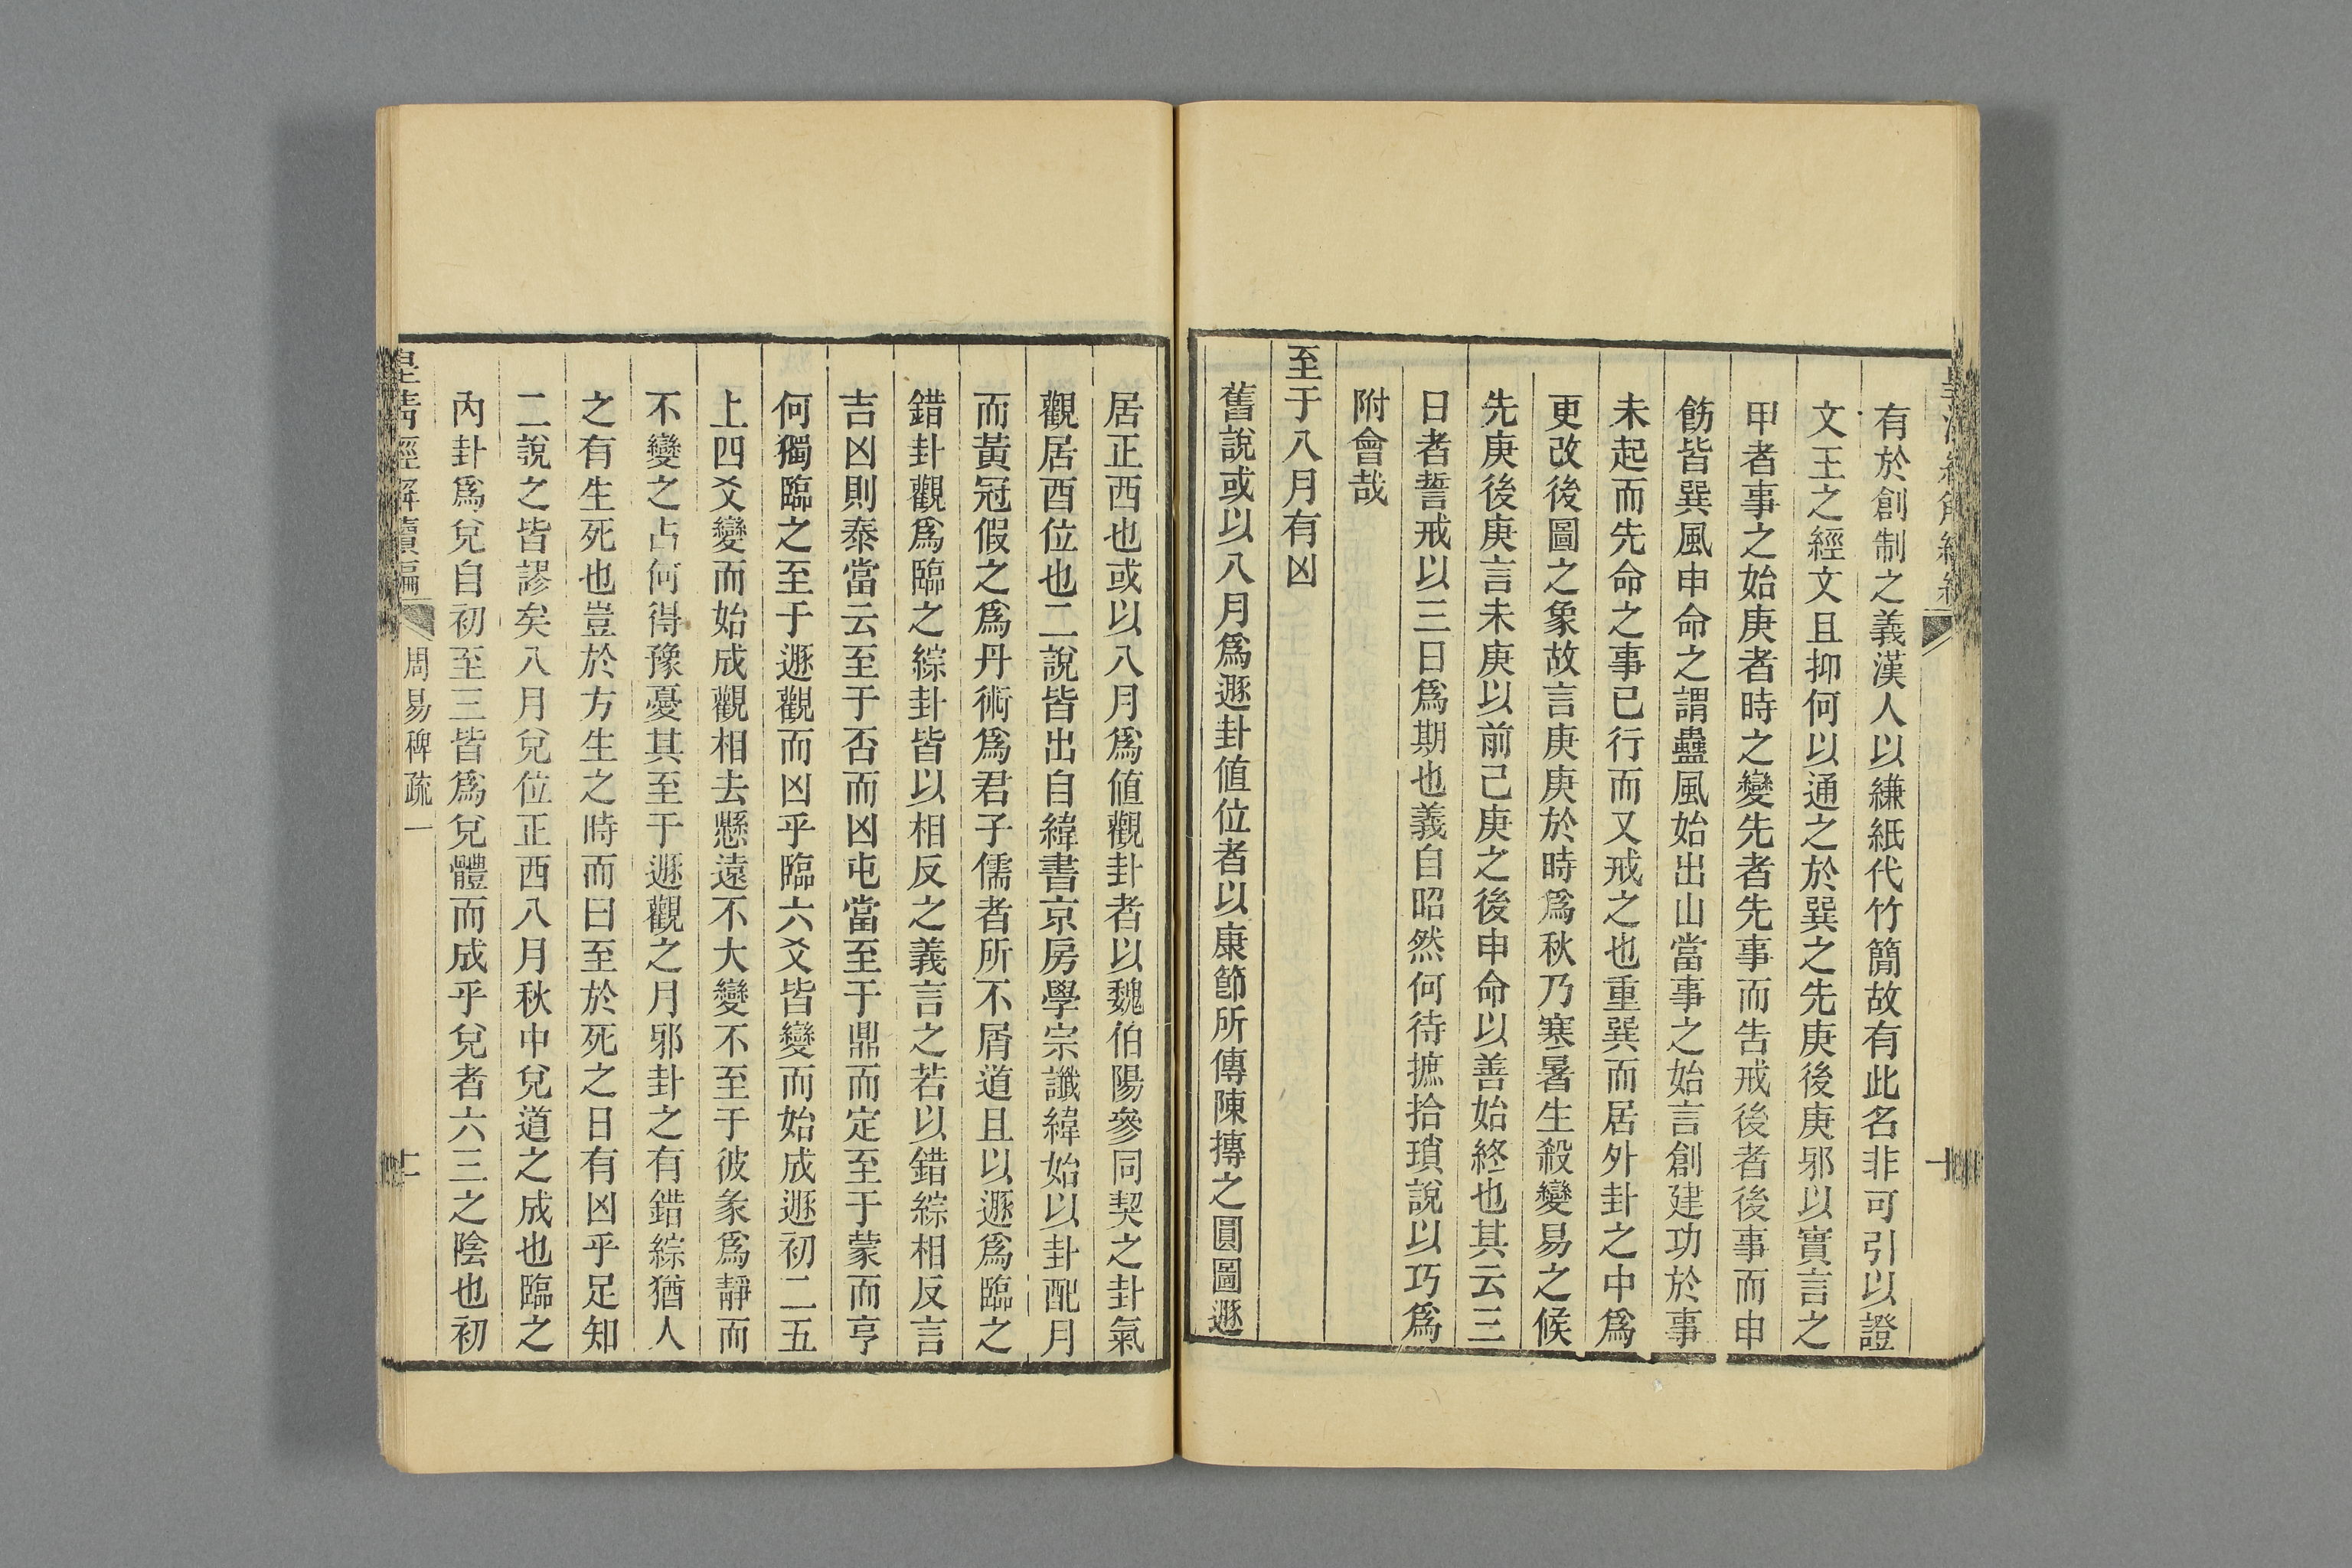 有於創制之義漢人以縑紙代竹簡故有此名非可引以證
文王之經文且抑何以通之於巽之先庚後庚邪以實言之
甲者事之始庚者時之變先者先事而告戒後者後事而申
飭皆巽風申命之謂蠱風始出山當事之始言創建功於事
未起而先命之事已行而又戒之也重巽而居外卦之中爲
更改後圖之象故言庚庚於時爲秋乃寒暑生殺變易之候
先庚後庚言未庚以前己庚之後申命以善始終也其云三
日者誓戒以三日爲期也義自昭然何待摭拾瑣說以巧爲
附會哉
至于八月有凶
舊說或以八月爲遯卦値位者以康節所傳陳摶之圓圖遯
居正西也或以八月爲値觀卦者以魏伯陽參同契之卦氣
觀居酉位也二說皆出自緯書京房學宗讖緯始以卦配月
而黃冠假之爲丹術爲君子儒者所不屑道且以遯爲臨之
錯卦觀爲臨之綜卦皆以相反之義言之若以錯綜相反言
吉凶則泰當云至于否而凶屯當至于鼎而定至于蒙而亨
何獨臨之至于遯觀而凶乎臨六爻皆變而始成遯初二五
上四爻變而始成觀相去懸遠不大變不至于彼象爲靜而
不變之占何得豫憂其至于遯觀之月邪卦之有錯綜猶人
之有生死也豈於方生之時而曰至於死之日有凶乎足知
二說之皆謬矣八月兌位正西八月秋中兌道之成也臨之
內卦爲兌自初至三皆爲兌體而成乎兌者六三之陰也初
皇淸經解續編 周易稗疏一 十一